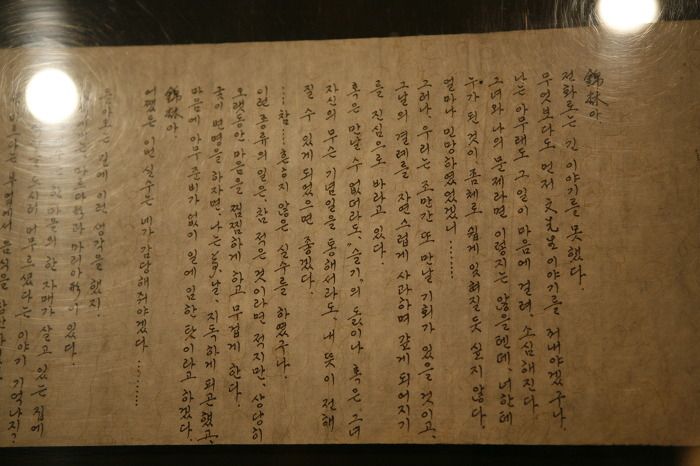 錦林아
전화로는 긴 이야기를 못했다.
무엇보다도 먼저 이야기를 꺼내야겠구나.
나는 아무래도 그 일이 마음에 걸려, 소심해진다.
그녀와 나의 문제라면 이렇지는 않을텐데, 너한테
누가 된 것이 좀체로 쉽게 잊혀질 듯 싶지 않다.
얼마나 민망하였었겠니………
그러나, 우리는 조만간 또 만날 기회가 있을 것이고,
그날의 결례를 자연스럽게 사과하며 갚게 되어지기
를 진심으로 바라고 있다.
혹은 만날 수 없더라도, "슬기"의 돐이나 혹은 그녀
자신의 무슨 기념일을 통해서라도, 내 뜻이 전해
질 수 있게 되었으면 좋겠다.
…참… 흔하지 않은 실수를 하였구나.
이런 종류의 일은, 참 적은 것이라면 적지만, 상당히
오랫동안 마음을 찜찜하게 하고 무겁게 한다.
굳이 변명을 하자면, 나는 그날, 지독하게 피곤했고,
마음에 아무 준비가 없이 일에 임한 탓이라고 하겠다.
錦林아.
어쨌든 이번 실수는 네가 감당해줘야겠다.………
돌아오는 길에 이런 생각을 했지.
마리아가 있다.
한 마을의 한 자매가 살고 있는 집에
들러 머무르셨다는 이야기 기억나지?
마르타는 부엌에서 음식을 장만하